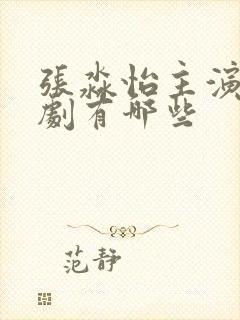 張淼怡主演
劇有哪些
范靜